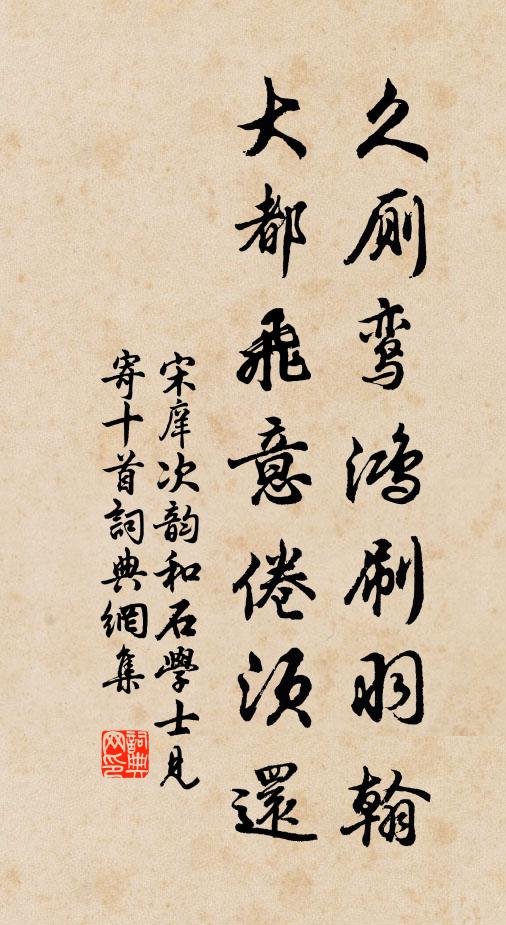 久厕鸾鸿刷羽翰
大都飛意倦须還
宋庠次韵和石學士見
寄十首詞典網集
詞典
网印